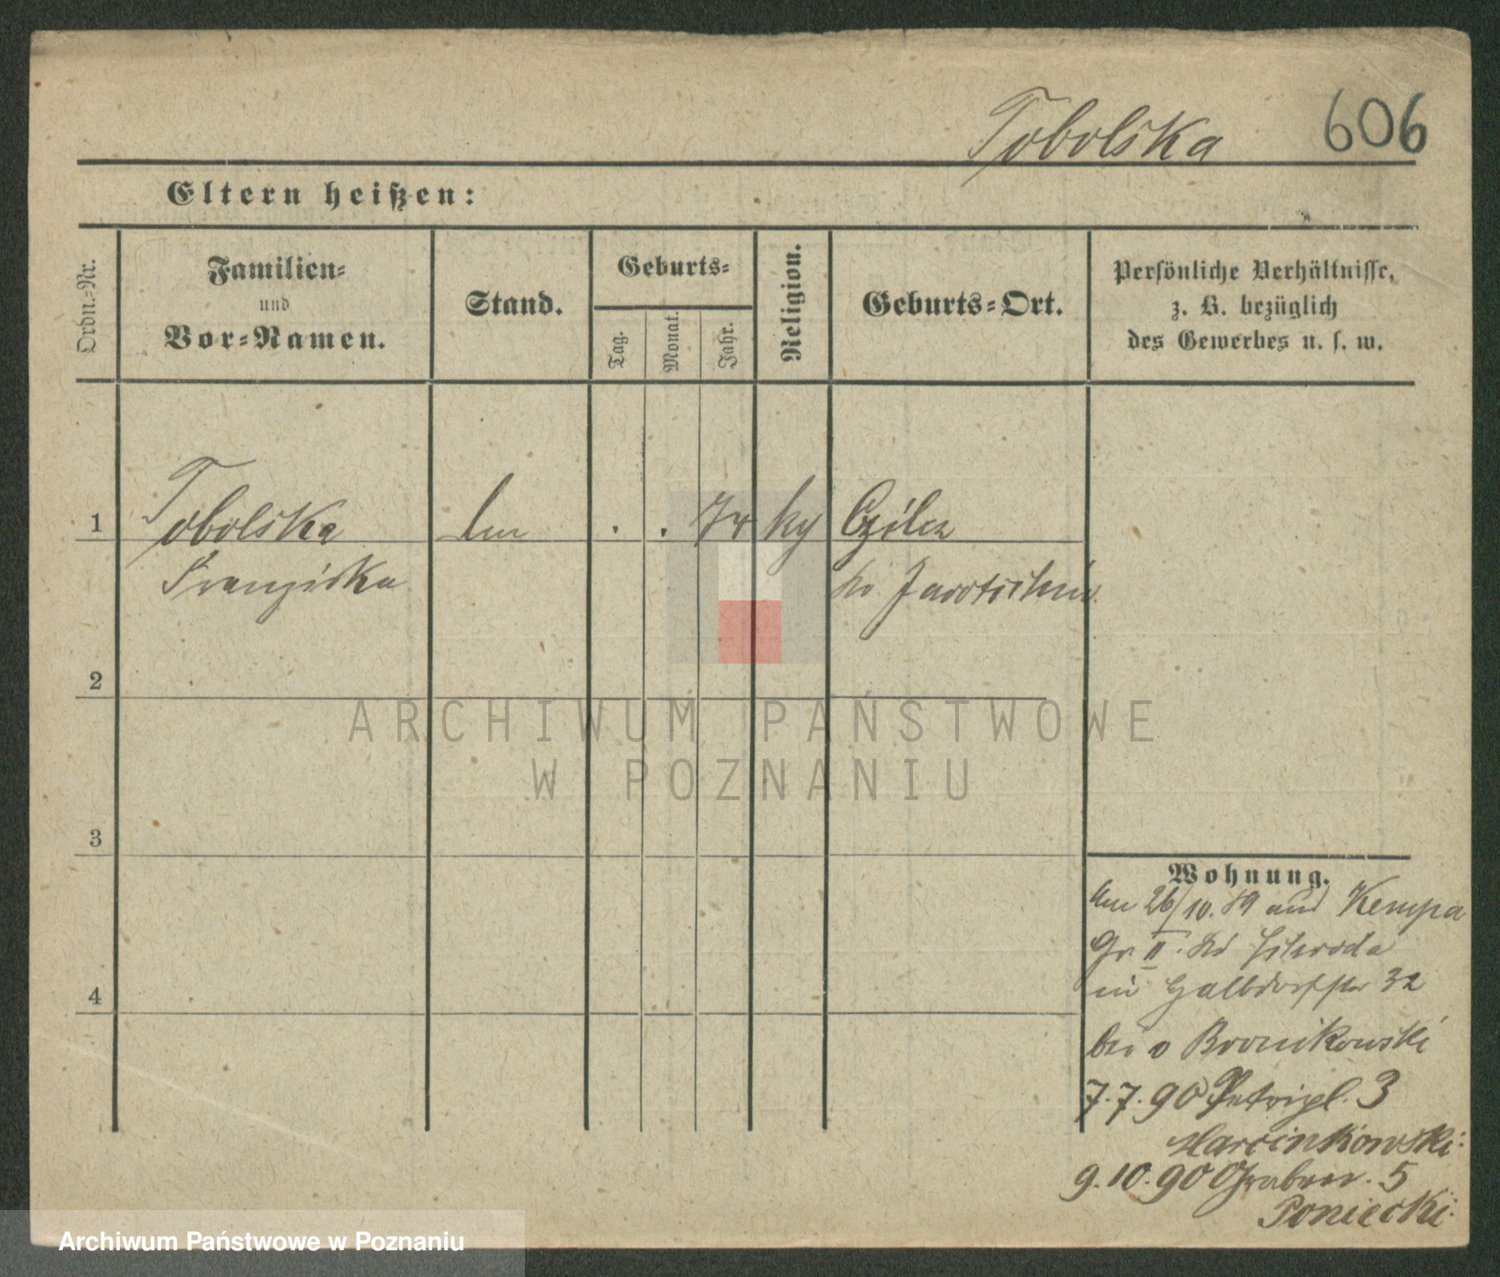 Tobolska 606
Eltern heißen:
Ordn.-Nr.
Familien-
und
Vor-Namen.
Stand.
Geburts-
Tag.
Monat.
Jahr.
Religion.
Geburts-Ort.
Persönliche Verhältnisse,
z. B. bezüglich
des Gewerbes u. s. w.
1 Tobolska . . 74
Franziska Jarotschin
2
3
4
ARCHIWUM PAŃSTWOWE
W POZNANIU
Wohnung.
26/10. 89 aus Kempa
Gr. II. Schroda
in Halbdorfstr 32
bei v Bronikowski
7.7.90 Petripl. 3
Marcinkowski.
9.10.90 Graben. 5
Poniecki.
Archiwum Państwowe w Poznaniu